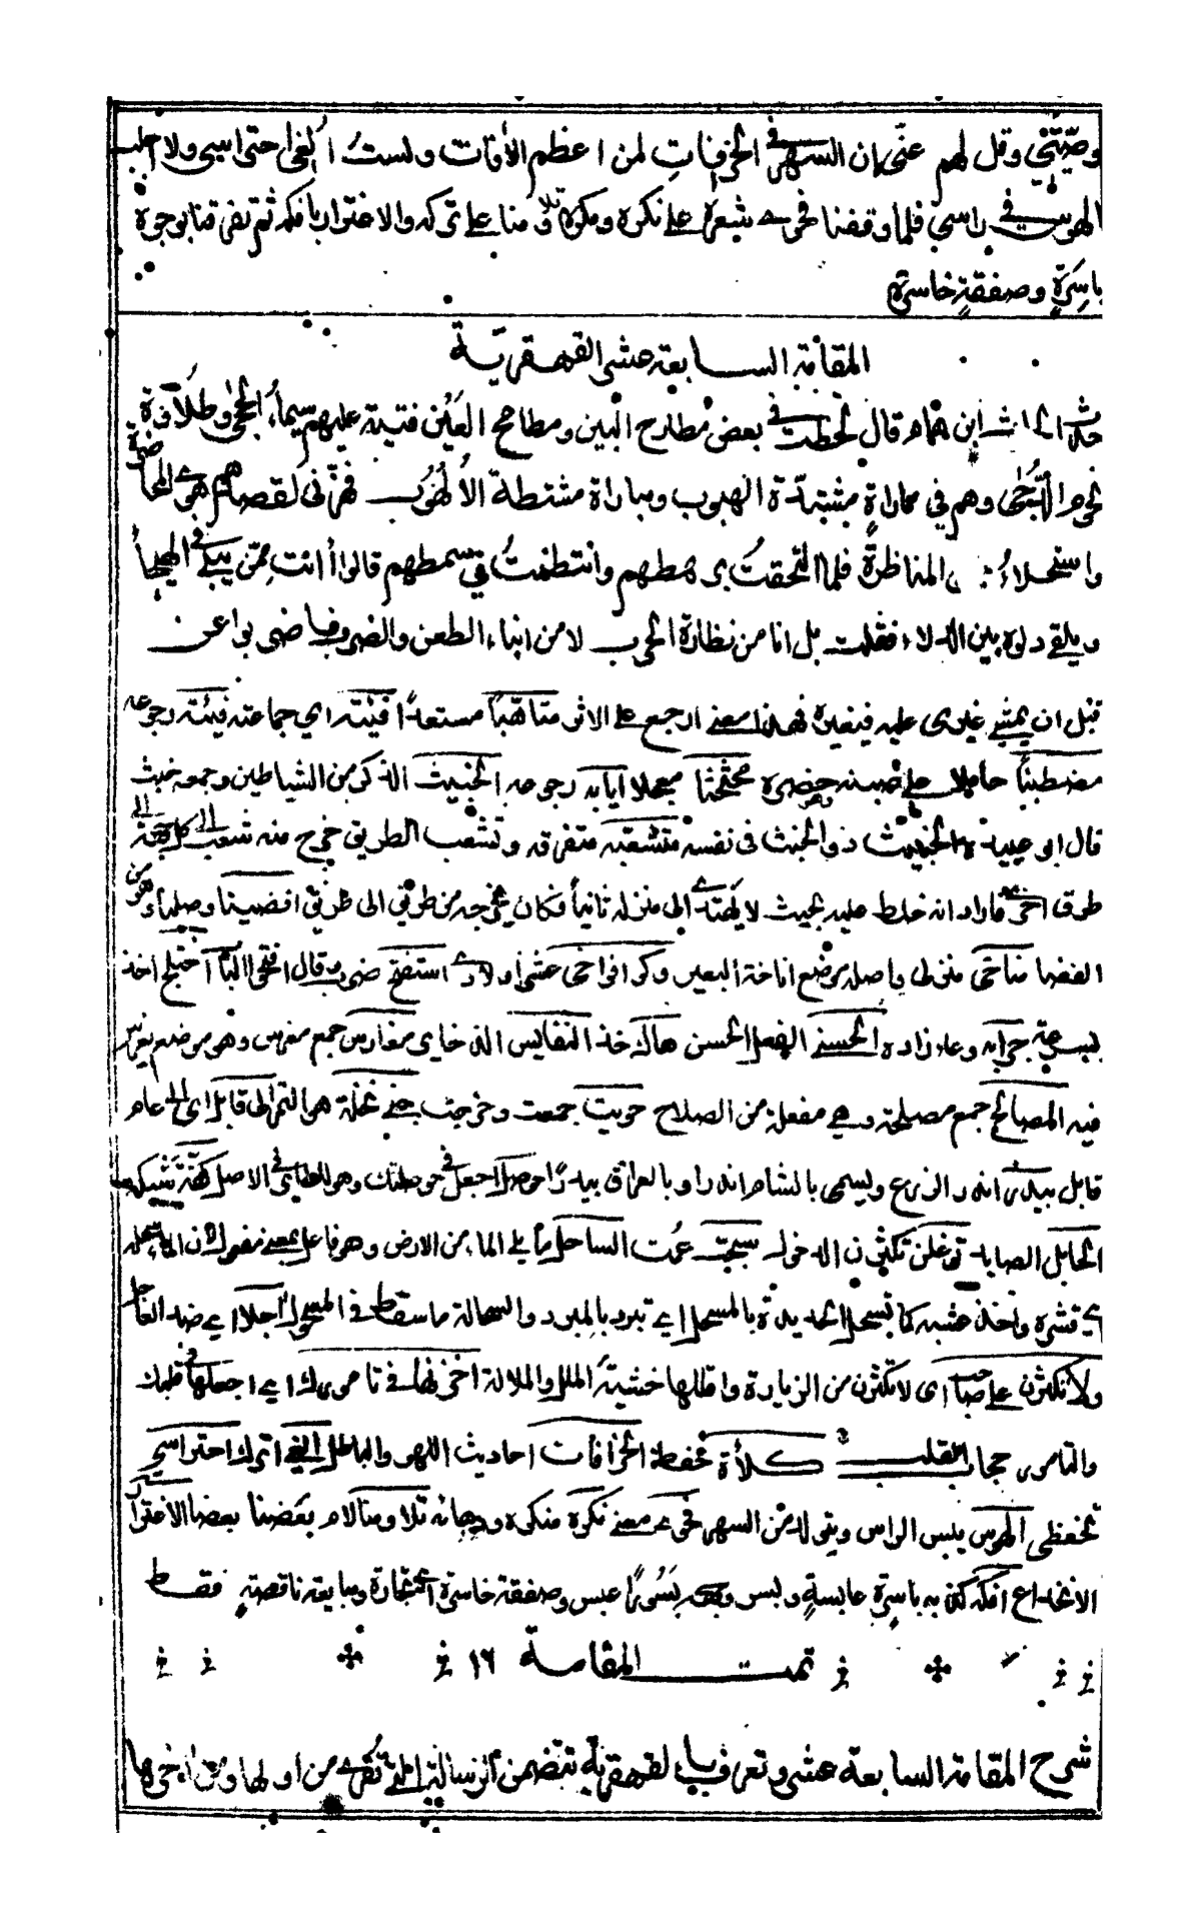 وصيتي وقل لهم عني ان السهر في الخرافات لمن اعظم الأفات ولست الغي احتراسي ولا اجلب
الهوس في راسي فلما وقفنا فحوى شعره على نكره ومكره تلاومنا على تركه والاغترار بإفكه ثم تفرقنا بوجوه
باسرة وصفقة خاسرة
المقامة السابعة عشر القهقرية
حدث الحارث ابن همام قال لحظت في بعض مطارح البين ومطامح العين فتية عليهم سيماء الحجى وطلاوة
نجوم الدجى وهم في مماراة مشتدة الهبوب ومباراة مشتطة الألهوب فهزني لقصدهم هوى المحاضرة
واستحلاء المناظرة فلما التحقت برهطهم وانتظمت في سمطهم قالوا أأنت ممن يبلى في الهيجاء
ويلقى دلوه بين الدلاء فقلت بل انا من نظارة الحرب لا من ابناء الطعن والضرب فاضربوا عن
قبل ان يمشي غيري عليه فيغيره فهذا معنى ارجع على الاثر متاهبا مستعدا فيئته اي جماعته فيئته رجوعه
مضطبنا حاملا على ضبنه حضنه محثحثا معجلا ايابه رجوعه الخبيث الذكر من الشياطين وجمعه خبث
قال ابو عبيدة الخبيث ذو الخبث في نفسه متشعبة متفرقه وتشعب الطريق خرج منه شعب الى كل جهة الى
طرق اخرى فاراد انه خلط عليه بحيث لا يهتدى الى منزله ثانيا فكان يخرجه من طرق الى طرق افضينا وصلنا وهو من
الفضا مناخي منزلي واصله موضع اناخة البعير وكر افراخى عشى اولادى استفتح ضرب وقال افتحوا الباب اختلج اخذ
بسرعة جرابه وعاء زاده الحسنى الفعل الحسن هاك خذ النفايس الذخاير مغارس جمع مغرس وهو موضع يغرس
فيه المصالح جمع مصلحة وهي مفعلة من الصلاح حويت جمعت وحزجت جنى نخلة هو التمر الى قابل اي الى عام
قابل بيدر اندر الزرع ويسمى بالشام اندرا وبالعراق بيدرا حوصل اجعل في حوصلتك وهو للطاير في الاصل كفة شبكة
الحابل الصايد توغلن تكثرن الدخول سبحت عمت الساحل ما يلي الماء من الارض وهو فاعل بمعنى مفعول لان الماء سحله
اي قشره واخذ عشبه كما تسحل الحديدة بالمسحل اي تبرد بالمبرد والسحالة ما سقط من المسحول اجلا اي ضد العاجل
ولا تكثرن على صاحب اى لا تكثرن من الزيارة واقللها خشية الملل والملالة اخزنها في تامورك اي اجعلها في قلبك
والتامور حجاب القلب كلأة محفظة الخرافات احاديث اللهو والباطل الغي اترك احتراسي
تحفظي الهوس يبس الراس ويتولد من السهر فحوى معنى نكره منكره ودهائه تلاومنا لام بعضنا بعضا الاغترار
الانخداع افكه كذبه باسرة عابسة وبسر بسورا عبس وصفقة خاسرة اى تجارة ومبايعة ناقصة فقط
تمت المقامة ١٦
شرح المقامة السابعة عشر وتعرف بالقهقرية تتضمن الرسالة التي تقرى من اولها ومن اخرها